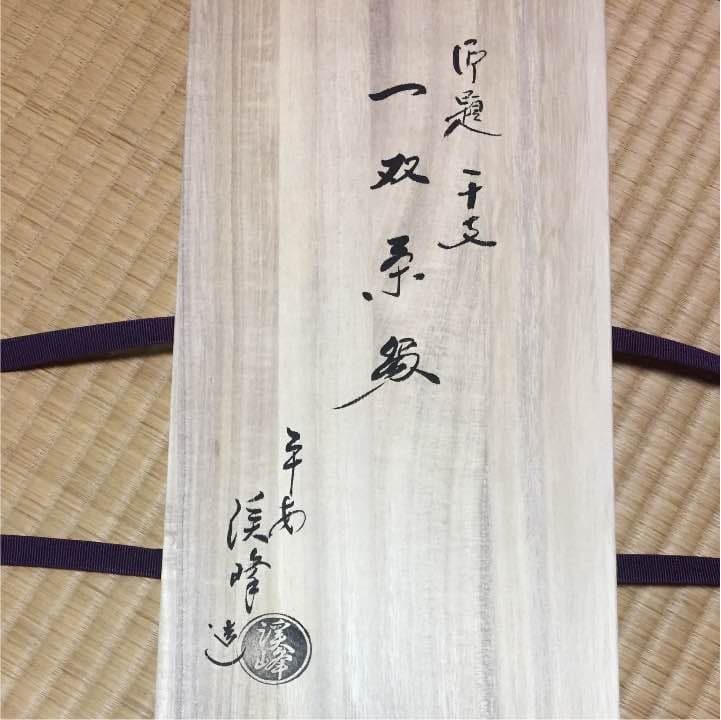 御題 干支
一双茶盌
平安
渓峰造
渓峰